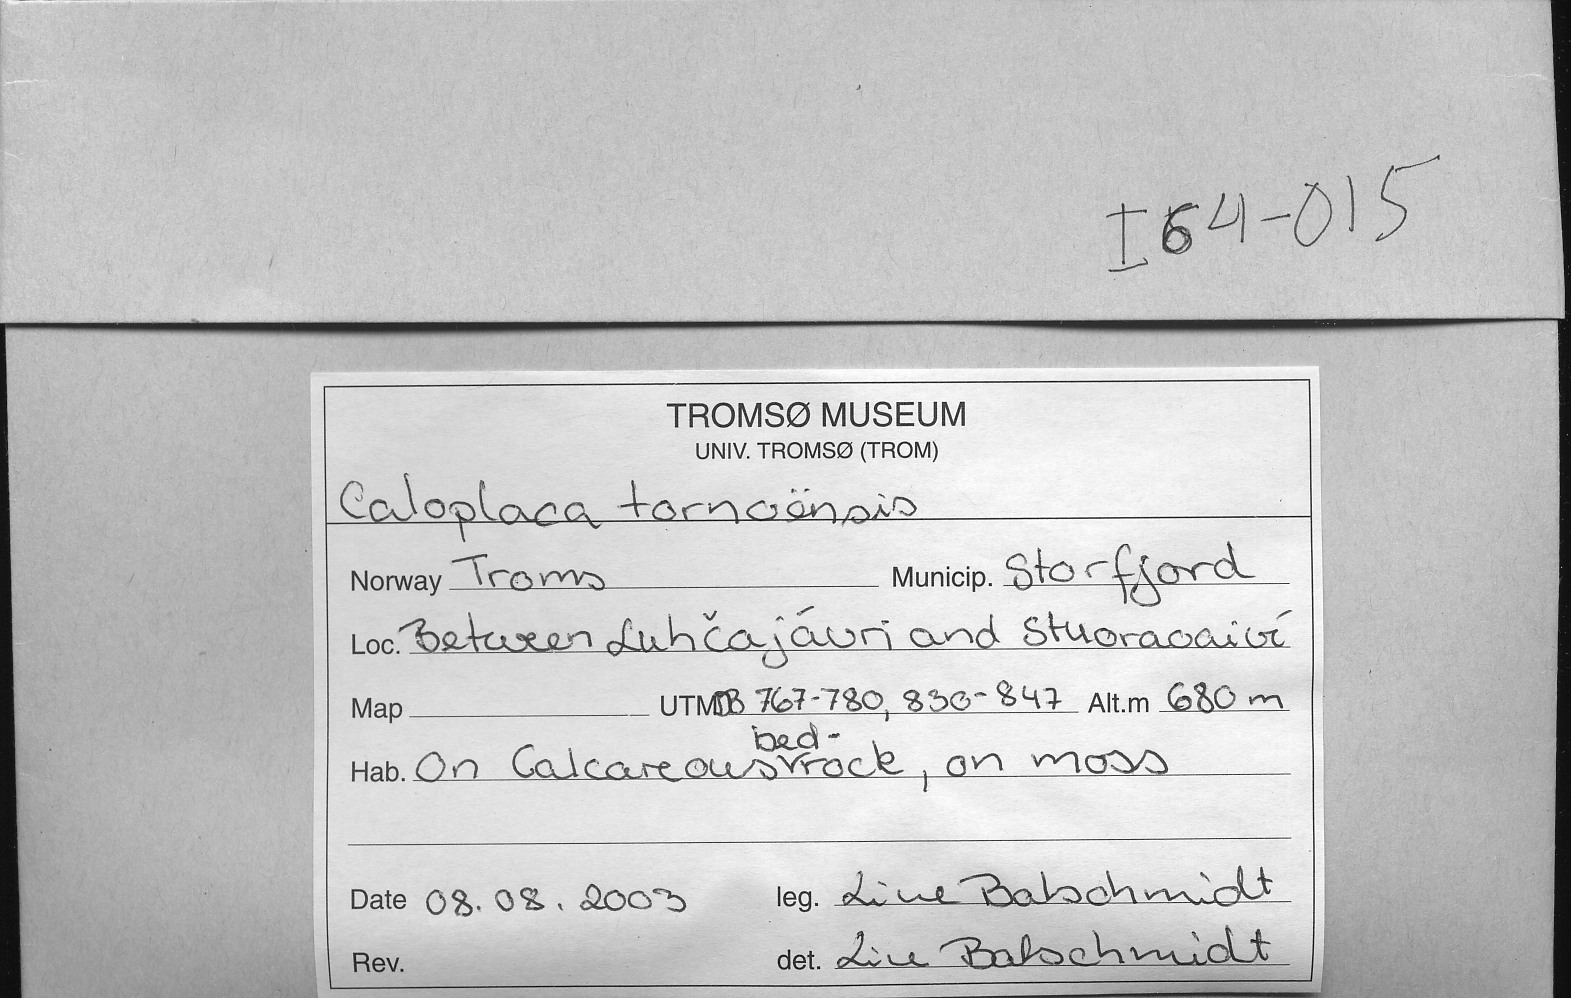 I64-015
TROMSØ MUSEUM
UNIV. TROMSØ (TROM)
Caloplaca tornoënsis
Norway Troms Municip. Storfjord
Loc. Between Luhčajávri and Stuoraoaivi
Map UTM DB 767-780, 830-847 Alt.m 680 m
bed-
Hab. On Calcareous rock, on moss
Date 08.08.2003 leg. Line Balschmidt
Rev. det. Line Balschmidt